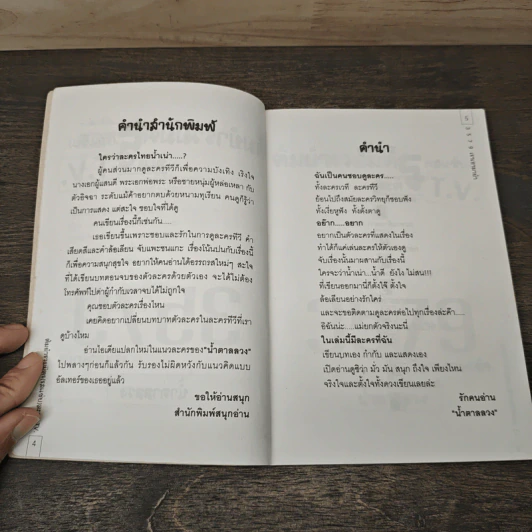 คำนำสำนักพิมพ์
ใครว่าละครไทยน้ำเน่า.....?
ผู้คนส่วนมากดูละครทีวีก็เพื่อความบันเทิง เริงใจ
นางเอกผู้แสนดี พระเอกพ่อพระ หรือชายหนุ่มผู้หล่อเหลา กับ
ตัวอิจฉา ระดับแม้ค้าอยากตบด้วยหนามทุเรียน คนดูก็รู้ว่า
เป็นการแสดง แต่สะใจ ชอบใจที่ได้ดู
คนเขียนเรื่องนี้ก็เช่นกัน....
เธอเขียนขึ้นเพราะชอบและรักในการดูละครทีวี คำ
เสียดสีและคำล้อเลียน จับแพะชนแกะ เรื่องโน้นปนกับเรื่องนี้
ก็เพื่อความสนุกสุขใจ อยากให้คนอ่านได้อรรถรสใหม่ๆ สะใจ
ที่ได้เขียนบทตอนจบของตัวละครด้วยตัวเอง จะได้ไม่ต้อง
โทรศัพท์ไปด่าผู้กำกับเวลาจบได้ไม่ถูกใจ
คุณชอบตัวละครเรื่องไหน
เคยคิดอยากเปลี่ยนบทบาทตัวละครในละครทีวีที่เรา
ดูบ้างไหม
อ่านไอเดียแปลกใหม่ในแนวละครของ "น้ำตาลลวง"
ไปพลางๆก่อนก็แล้วกัน รับรองไม่ผิดหวังกับแนวคิดแบบ
อัลเทอร์ของเธออยู่แล้ว
ขอให้อ่านสนุก
สำนักพิมพ์สนุกอ่าน
4
คำนำ
ฉันเป็นคนชอบดูละคร....
ทั้งละครเวที ละครทีวี
ย้อนไปถึงสมัยละครวิทยุก็ชอบฟัง
ทั้งเงี่ยหูฟัง ทั้งตั้งตาดู
อย๊าก.....อยาก
อยากเป็นตัวละครที่แสดงในเรื่อง
ทำได้ก็แค่เล่นละครให้ตัวเองดู
จับเรื่องนั้นมาผสานกับเรื่องนี้
ใครจะว่าน้ำเน่า...น้ำดี ยังไง ไม่สน!!!
ที่เขียนออกมานี่ก็ตั้งใจ๊ ตั้งใจ
ล้อเลียนอย่างรักใคร่
และจะขอติดตามดูละครต่อไปทุกเรื่องล่ะค๊า....
อิฉันน่ะ.....แม่ยกตัวจริงนะนี่
ในเล่มนี้มีละครที่ฉัน
เขียนบทเอง กำกับ และแสดงเอง
เปิดอ่านดูซิว่า มั่ว มัน สนุก ถึงใจ เพียงไหน
จริงใจและตั้งใจทั้งดวงเขียนเลยล่ะ
รักคนอ่าน
"น้ำตาลลวง"